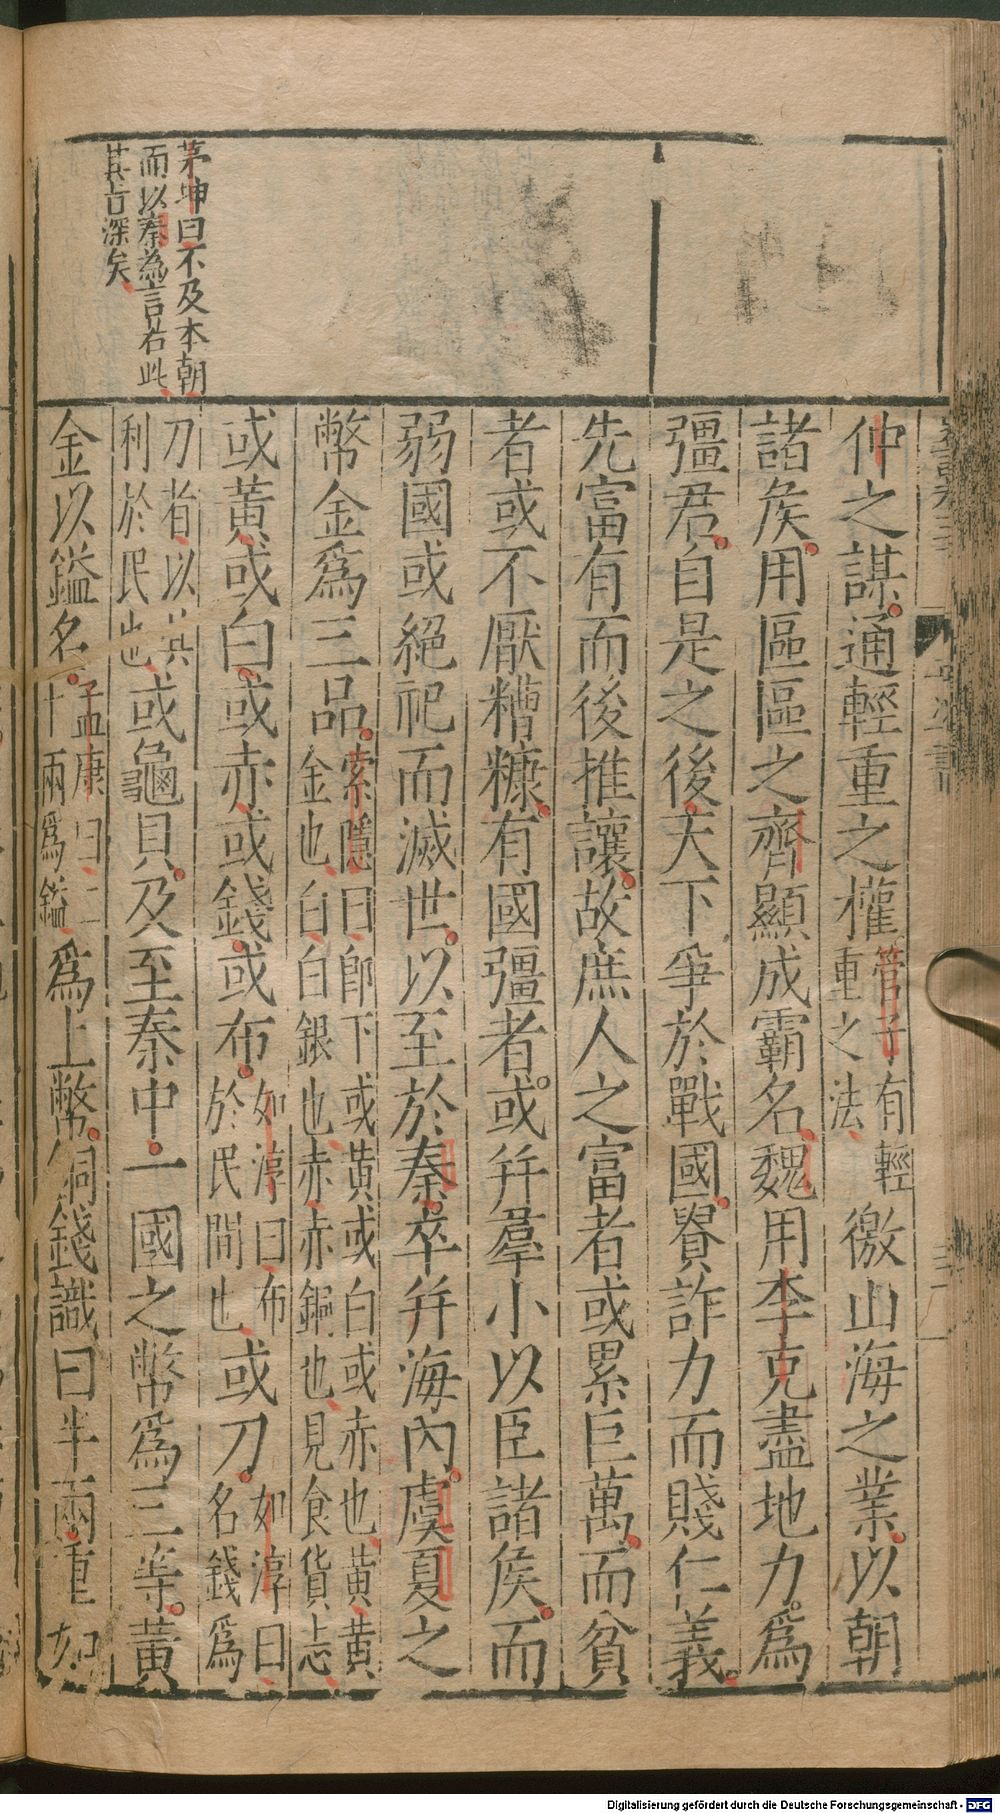 茅坤曰不及本朝
而以秦為言若此
其旨深矣
仲之謀通輕重之權管子有輕重之法徼山海之業以朝
諸矦用區區之齊顯成霸名魏用李克盡地力爲
彊君自是之後天下爭於戰國貴詐力而賤仁義
先富有而後推讓故庶人之富者或累巨萬而貧
者或不厭糟糠有國彊者或幷羣小以臣諸矦而
弱國或絕祀而滅世以至於秦卒幷海內虞夏之
幣金爲三品索隱曰即下或黄或白或赤也黄黄金也白白銀也赤赤銅也見食貨志
或黃或白或赤或錢或布如淳曰布於民間也或刀如淳曰名錢爲
刀者以其利於民也或龜貝及至秦中一國之幣爲三等黃
金以鎰名孟康曰二十兩爲鎰爲上幣銅錢識曰半兩重如
Digitalisierung gefördert durch die Deutsche Forschungsgemeinschaft - DFG